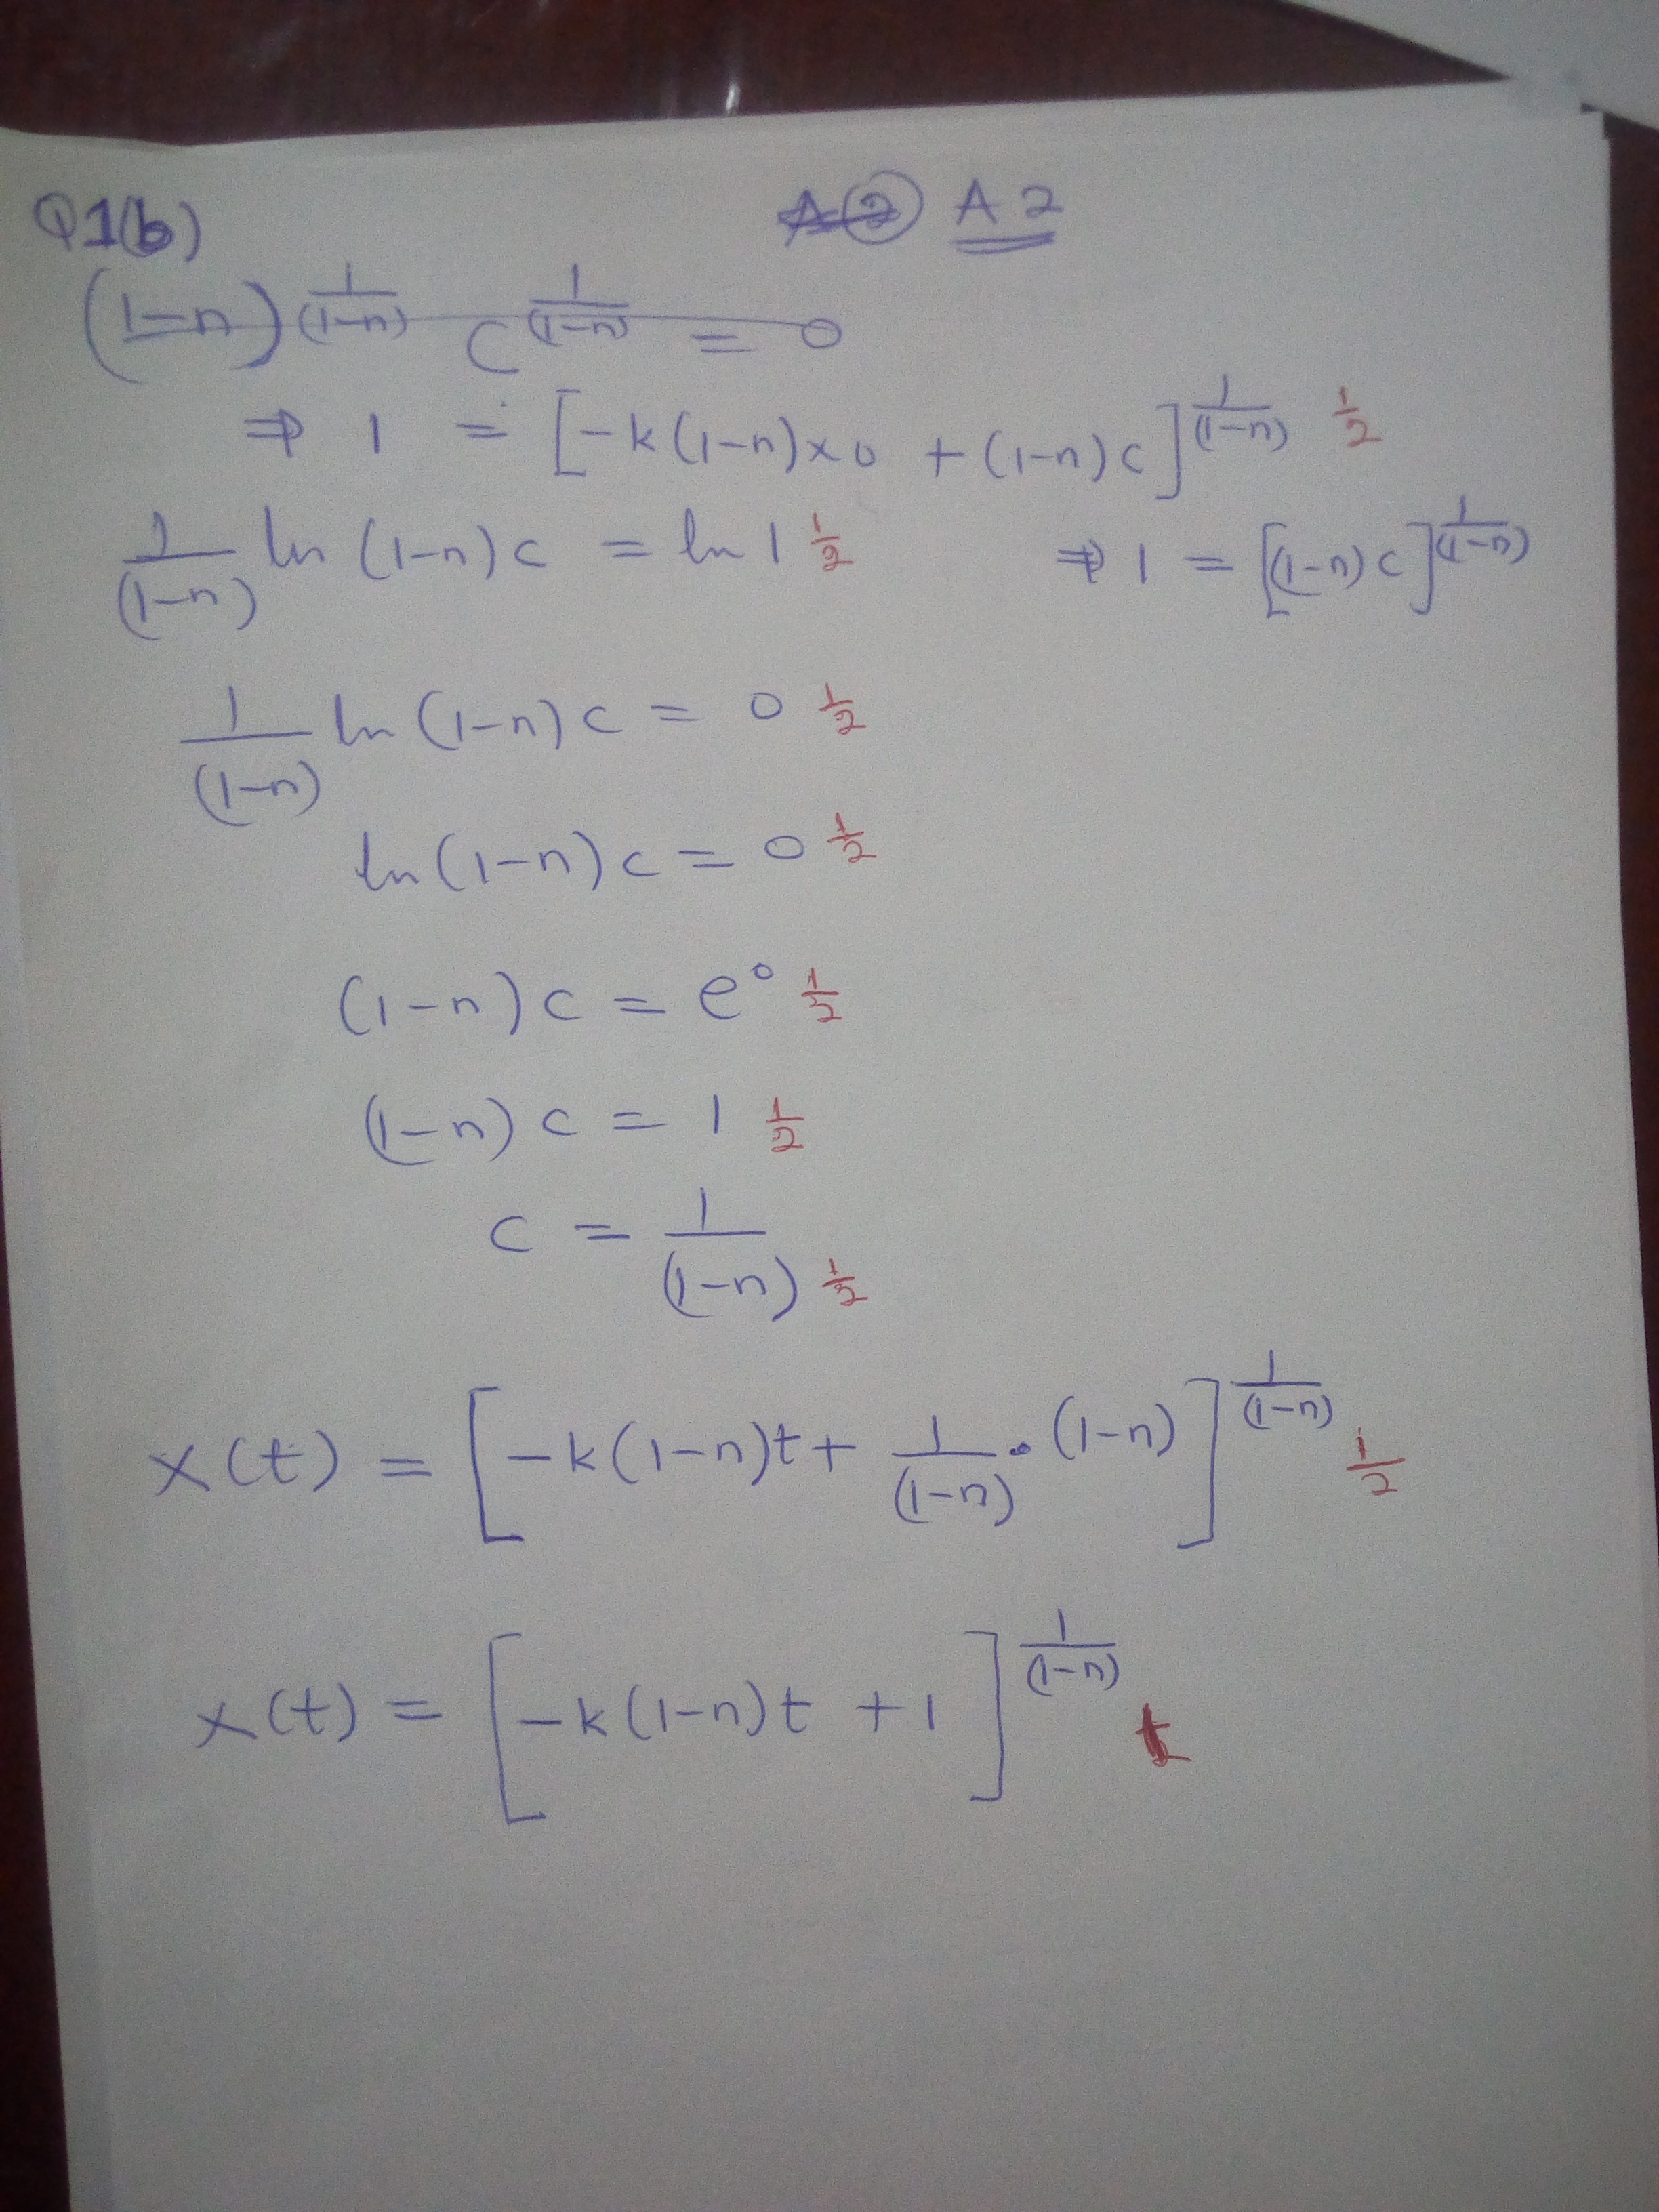 Q1(b) A2 A2
(1-n)^{\frac{1}{(1-n)}} C^{\frac{1}{(1-n)}} = 0
⇒ 1 = [-k(1-n)×0 + (1-n)c]^{\frac{1}{(1-n)}} \frac{1}{2}
\frac{1}{(1-n)} ln (1-n)c = ln 1 \frac{1}{2} ⇒ 1 = [(1-n)c]^{\frac{1}{(1-n)}}
\frac{1}{(1-n)} ln (1-n)c = 0 \frac{1}{2}
ln(1-n)c = 0 \frac{1}{2}
(1-n)c = e^0 \frac{1}{2}
(1-n)c = 1 \frac{1}{2}
c = \frac{1}{(1-n)} \frac{1}{2}
x(t) = [-k(1-n)t + \frac{1}{(1-n)} \cdot (1-n)]^{\frac{1}{(1-n)}} \frac{1}{2}
x(t) = [-k(1-n)t + 1]^{\frac{1}{(1-n)}}